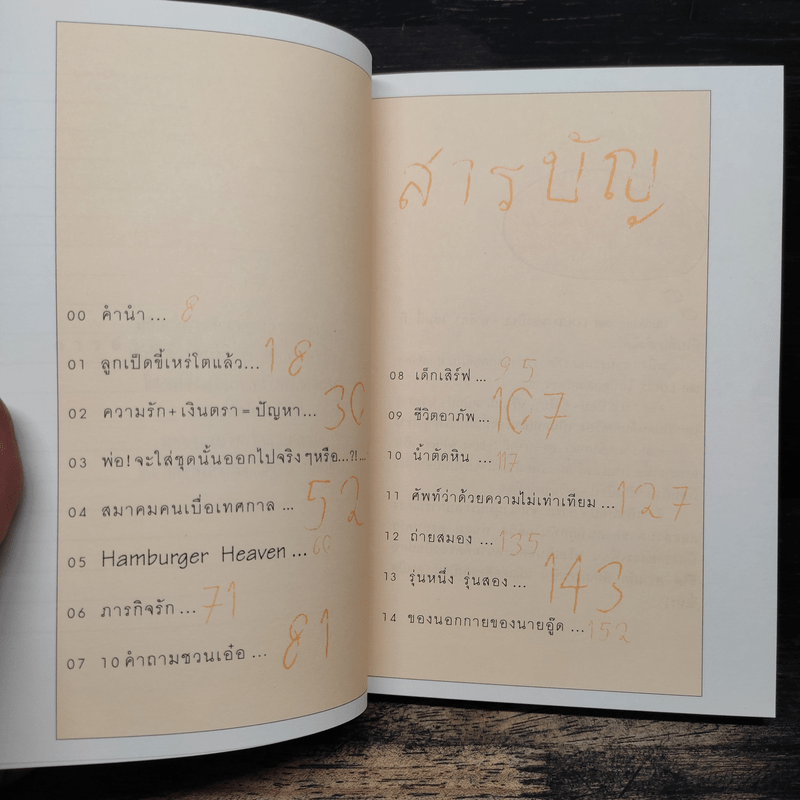 00 คำนำ... 8
01 ลูกเป็ดขี้เหร่โตแล้ว... 18
02 ความรัก+เงินตรา=ปัญหา... 30
03 พ่อ! จะใส่ชุดนั้นออกไปจริงๆหรือ...?!...
04 สมาคมคนเบื่อเทศกาล ... 52
05 Hamburger Heaven ... 60
06 ภารกิจรัก... 71
07 10 คำถามชวนเอ๋อ ... 81
สารบัญ
08 เด็กเสิร์ฟ ... 95
09 ชีวิตอาภัพ... 107
10 น้ำตัดหิน ... 117
11 ศัพท์ว่าด้วยความไม่เท่าเทียม ... 127
12 ถ่ายสมอง ... 135
13 รุ่นหนึ่ง รุ่นสอง ... 143
14 ของนอกกายของนายอู๊ด ... 152